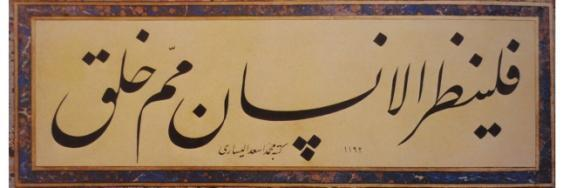 فلينظر الانسان ممّ خلق
كتبه محمد اسعد اليسارى
١١٩٢